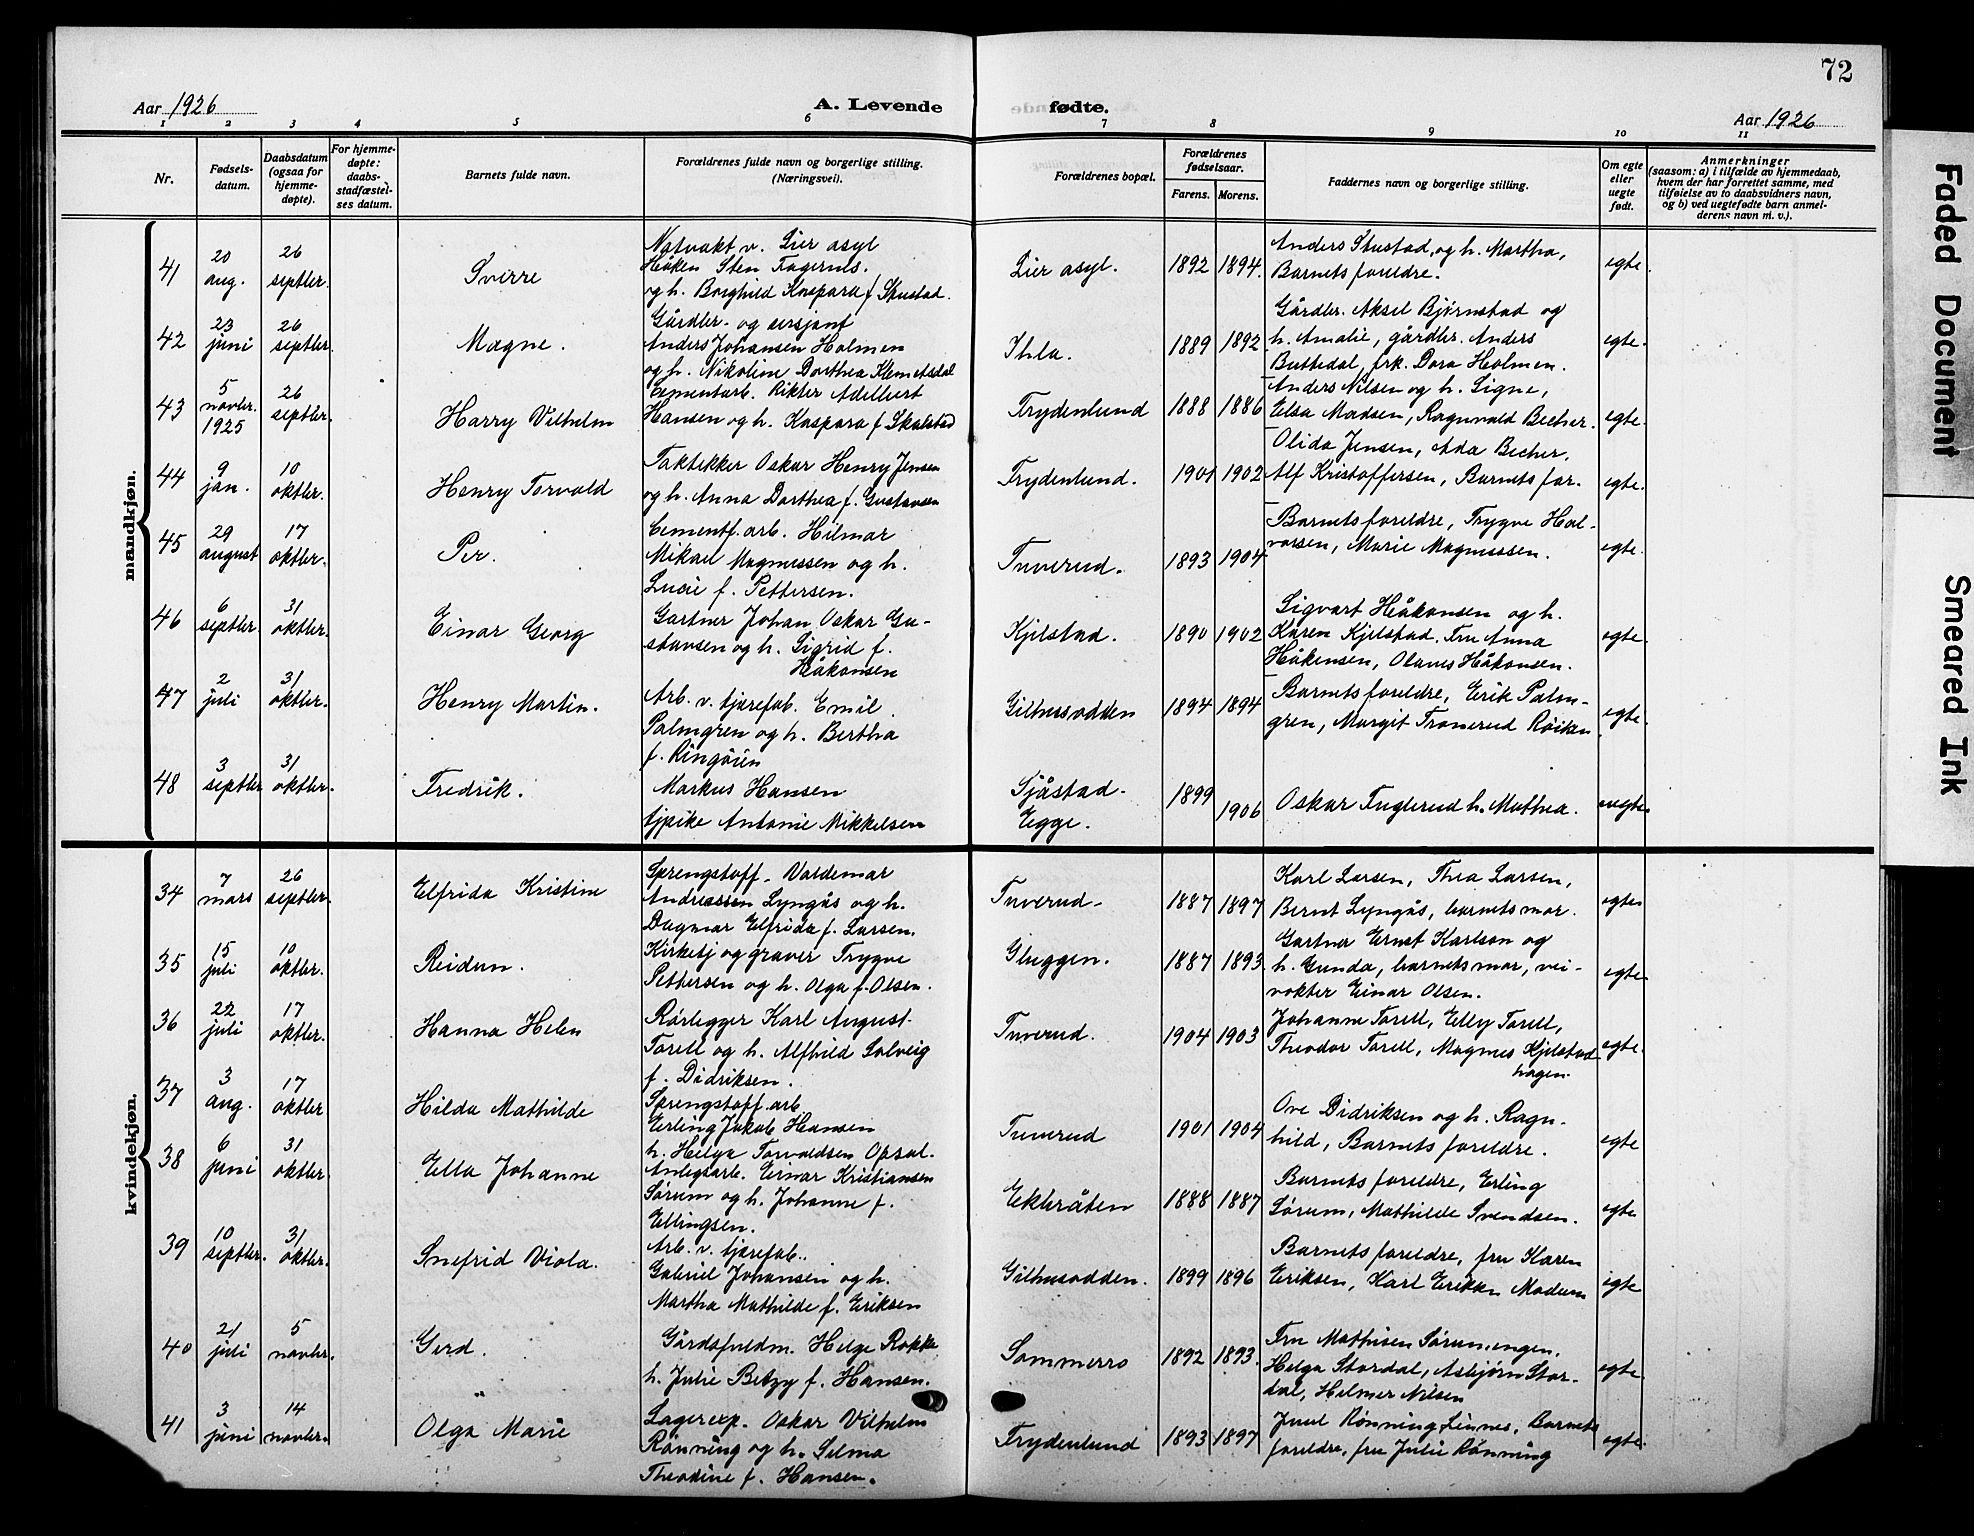 72
Aar 1926
A. Levende
fødte.
Aar 1926
1 2 3 4 5 6 7 8 9 10 11
Nr.
Fødsels-
datum.
Daabsdatum
(ogsaa for
hjemme-
døpte).
For hjemme-
døpte:
daabs-
stadfæstel-
ses datum.
Barnets fulde navn.
Forældrenes fulde navn og borgerlige stilling.
(Næringsvei).
Forældrenes bopæl.
Forældrenes
fødselsaar.
Farens. Morens.
Faddernes navn og borgerlige stilling.
Om egte
eller
uegte
født.
Anmerkninger
(saasom: a) i tilfælde av hjemmedaab,
hvem der har forrettet samme, med
tilføielse av to daabsvidners navn,
og b) ved uegtefødte barn anmel-
derens navn m. v.).
mandkjøn.
41
20
aug.
26
septbr.
Svirre
Natvakt v. Lier asyl
Håken Sten Fagernes.
og h. Borghild Kaspara f Skustad.
Lier asyl.
1892 1894.
Anders Skustad, og h. Martha,
Barnets foreldre.
egte.
42
23
juni
26
septbr.
Magne.
Gårdbr. og sersjant
Anders Johansen Holmen
og h. Nikoline Dorthea Klemetsdal
Ihla.
1889 1892
Gårdbr. Aksel Bjørnstad og
h. Amalie, gårdbr. Anders
Buttedal, frk. Dora Holmen.
egte.
43
5
novbr.
1925
26
septbr.
Harry Vilhelm
Cementarb. Rikter Adelbert
Hansen og h. Kaspara f Skalstad
Frydenlund
1888 1886
Anders Nilsen og h. Signe,
Elsa Madsen, Ragnvald Becher.
egte.
44
9
jan.
10
oktbr.
Henry Torvald
Taktekker Oskar Henry Jensen
og h. Anna Dorthea f. Gustavsen
Frydenlund.
1901 1902
Olida Jensen, Ada Becher,
Alf Kristoffersen, Barnets far.
egte.
45
29
august
17
oktbr.
Per.
Cementf. arb. Hilmar
Mikael Magnussen og h.
Lucie f. Pettersen.
Tuverud.
1893 1904
Barnets foreldre, Trygve Hal-
vorsen, Marie Magnussen.
egte.
46
6
septbr.
31
oktbr.
Einar Georg
Gartner Johan Oskar Gu-
stavsen og h. Sigrid f.
Håkonsen
Kjelstad.
1890 1902
Sigvart Håkonsen og h.
Karen Kjelstad. Fru Anna
Håkensen, Olaves Håkonsen.
egte.
47
2
juli
31
oktbr.
Henry Martin.
Arb. v. tjærefab. Emil
Palmgren og h. Bertha
f. Ringøien
Gilhusodden
1894 1894
Barnets foreldre, Erik Palm-
gren, Margit Tronerud Røiken
egte.
48
3
septbr.
31
oktbr.
Fredrik.
Markus Hansen
tjpike Antonie Mikkelsen
Sjåstad.
Egge.
1899
1906
Oskar Fuglerud h. Mathea.
uegte
kvindekjøn.
34
7
mars
26
septbr.
Elfrida Kristine
Sprengstoff. Valdemar
Andreassen Lyngås og h.
Dagmar Elfrida f. Larsen.
Tuverud.
1887 1897
Karl Larsen, Thea Larsen,
Bernt Lyngås, barnets mor.
egte
35
15
juli
10
oktbr.
Reidun.
Kirketj og graver Trygve
Pettersen og h. Olga f. Olsen.
Gluggen.
1887 1893
Gartner Ernst Karlson og
h. Gunda, barnets mor, vei-
vokter Einar Olsen.
egte
36
22
juli
17
oktbr.
Hanna Helen
Rørlegger Karl August
Torell og h. Alfhild Solveig
f. Didriksen.
Tuverud.
1904 1903
Johanne Torell, Elly Torell,
Theodor Torell, Magnus Kjelstad
hagen.
egte.
37
3
aug.
17
oktbr
Hilda Mathilde
Sprengstoff. arb
Erling Jakob Hansen
h. Helga Torvaldsen Opsal.
Tuverud
1901 1904
Ove Didriksen og h. Ragn-
hild, Barnets foreldre.
egte
38
6
juni
31
oktbr.
Ella Johanne
Anlegsarb. Einar Kristiansen
Sørum og h. Johanne f.
Ellingsen.
Eklaråten
1888 1887
Barnets foreldre, Erling
Sørum, Mathilde Svendsen.
egte
39
10
septbr.
31
oktbr.
Snefrid Viola.
Arb. v. tjærefab.
Gabriel Johansen og h.
Martha Mathilde f. Eriksen
Gilhusodden.
1899 1896
Barnets foreldre, fru Karen
Eriksen, Karl Eriksen Modum
egte
40
21
juli
5
novbr.
Gerd.
Gårdsfuldm. Helge Rokke
h. Julie Betzy f. Hansen.
Sommerro
1892 1893.
Fru Mathisen Sørumengen.
Helga Stordal, Asbjørn Stor-
dal, Helmer Nilsen
egte.
41
3
juni
14
novbr.
Olga Marie
Lagerexp. Oskar Vilhelm
Rønning og h. Selma
Theodine f. Hansen.
Frydenlund
1893 1897
Juul Rønning Linnes, Barnets
foreldre, fru Julie Rønning
egte.
Faded Document
Smeared Ink